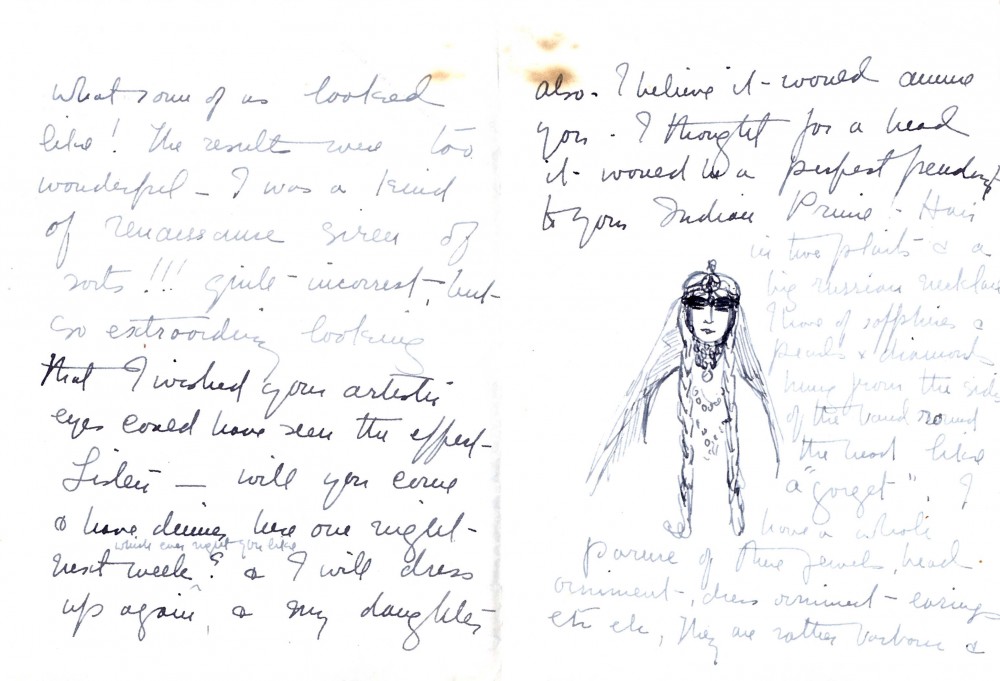 what some of us looked
like! The results were too
wonderful - I was a kind
of renaissance siren of
sorts!!! quite incorrect, but
so extraordinary looking
that I wished your artistic
eyes could have seen the effect -
Listen — will you come
& have dinner here one night -
which ever night you like
next week? & I will dress
up again, & my daughter
also. I believe it would amuse
you. I thought for a head
it would be a perfect pendant
to your Indian Prince! Hair
in two plaits & a
big russian necklace
I have of sapphires &
pearls & diamonds
hung from the side
of the band round
the head like
a "gorget". I
have a whole
parure of these jewels, head
orniment, dress orniment - earings
etc etc, They are rather barbaric &